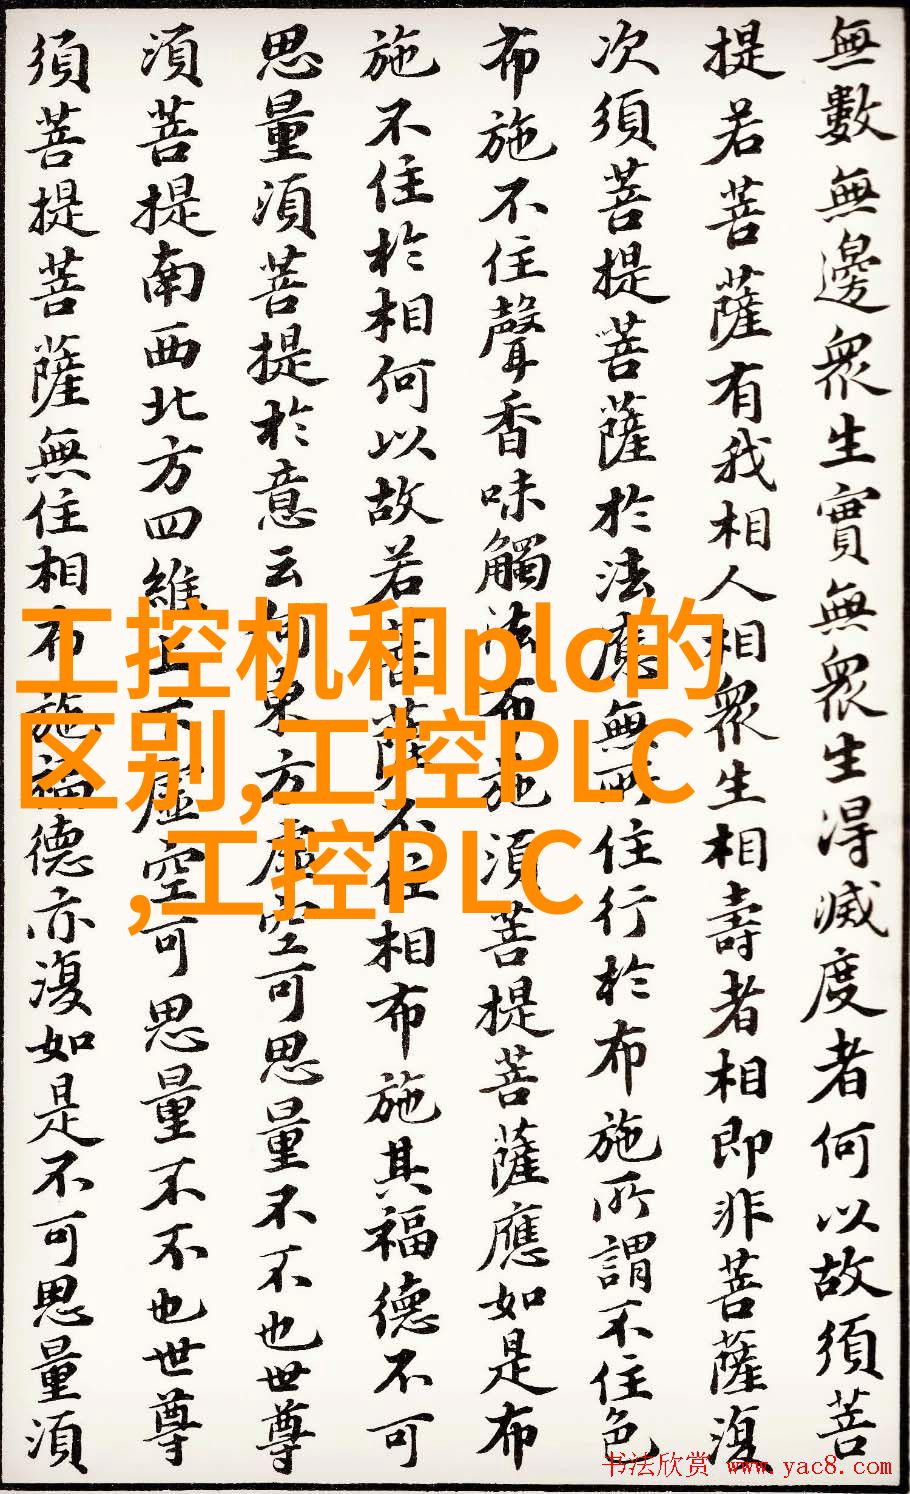 無數無邊衆生實無衆生得滅度者何以故須菩
提若菩薩有我相人相衆生相壽者相即非菩薩復
次須菩提菩薩於法應無所住行於布施所謂不住色
布施不住聲香味觸法布施須菩提菩薩應如是布
施不住於相何以故若菩薩不住相布施其福德不可
思量須菩提於意云何東方虛空可思量不不也世尊
須菩提南西北方四維上下虛空可思量不不也世尊
須菩提菩薩無住相布施福德亦復如是不可思量須
工控机和plc的
区别,工控PLC
,工控PLC
书法欣赏 www.yac8.com